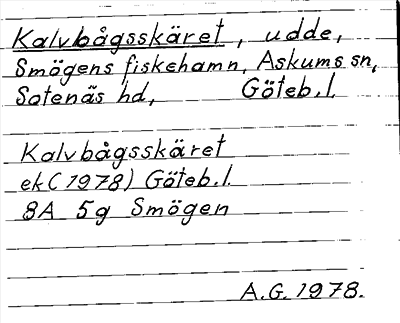 Kalvbågsskäret, udde,
Smögens fiskehamn, Askums sn,
Sotenäs hd, Göteb.l.
Kalvbågsskäret
ek (1978) Göteb.l.
8A 5g Smögen
A.G. 1978.